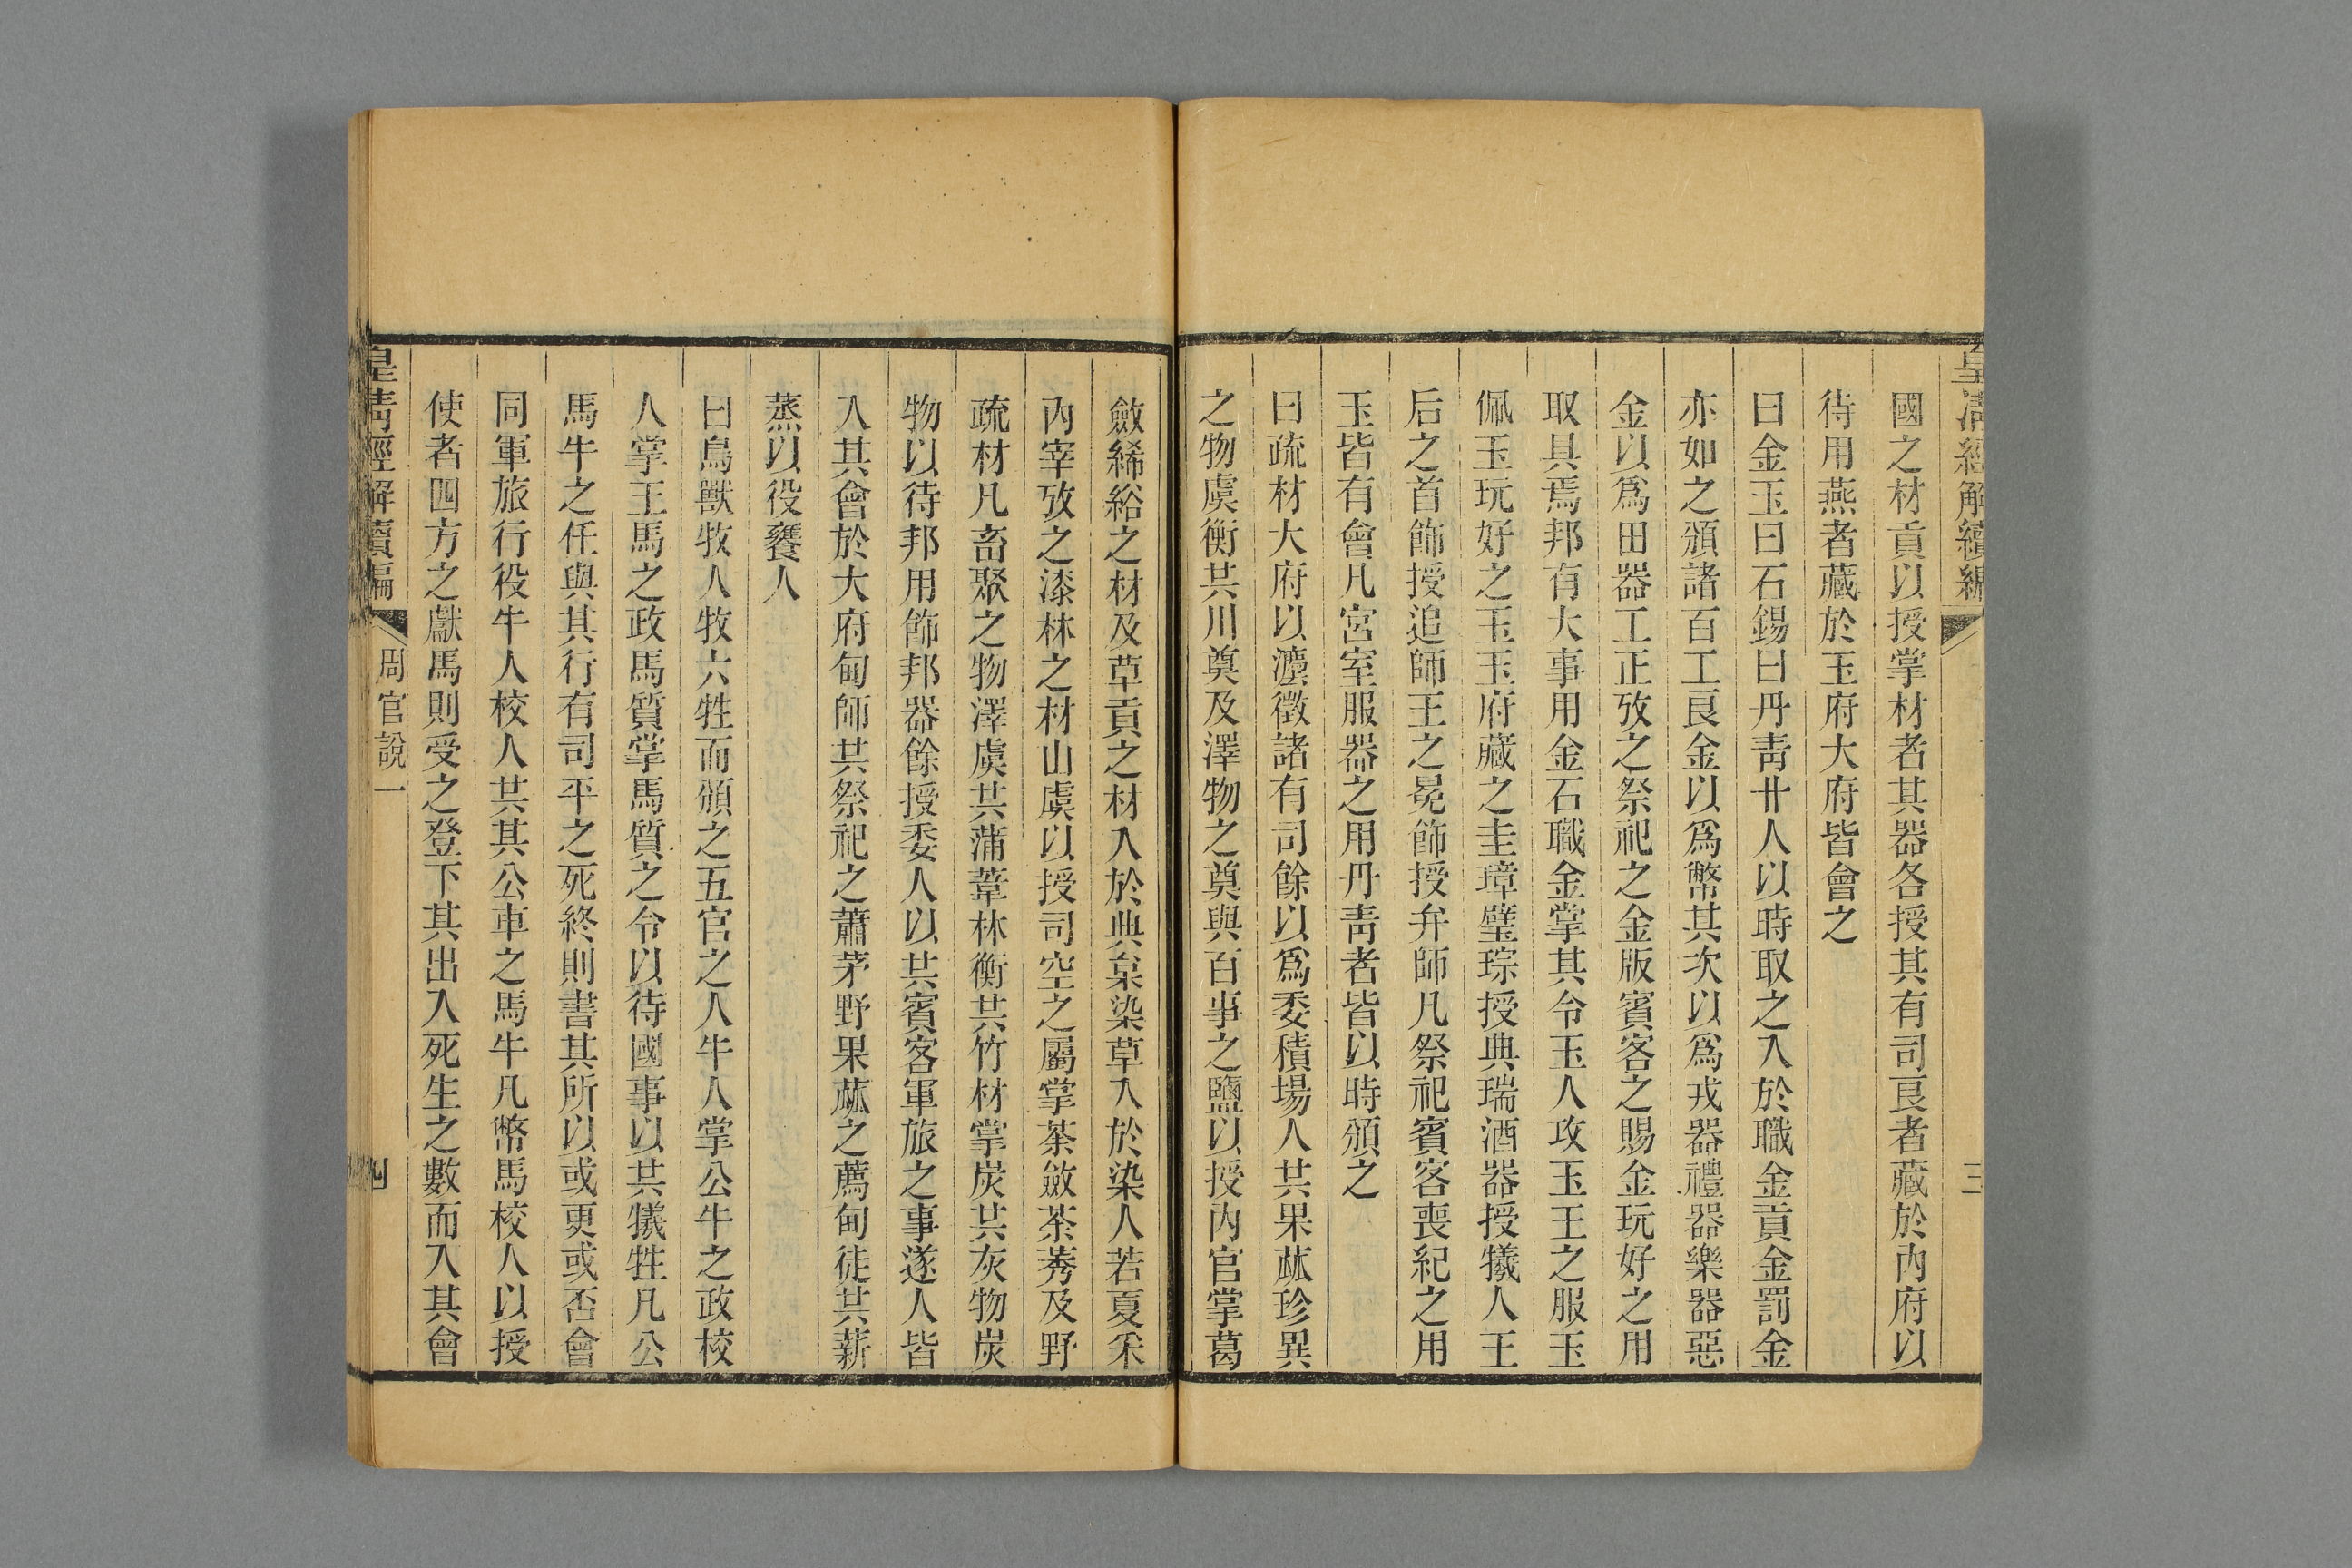 皇清經解續編
三
國之材貢以授掌材者其器各授其有司良者藏於內府以
待用燕者藏於玉府大府皆會之
曰金玉曰石錫曰丹靑卝人以時取之入於職金貢金罰金
亦如之頒諸百工良金以爲幣其次以爲戎器禮器樂器惡
金以爲田器工正攷之祭祀之金版賓客之賜金玩好之用
取具焉邦有大事用金石職金掌其令玉人攻玉王之服玉
佩玉玩好之玉玉府藏之圭璋璧琮授典瑞酒器授犧人王
后之首飾授追師王之冕飾授弁師凡祭祀賓客喪紀之用
玉皆有會凡宮室服器之用丹靑者皆以時頒之
曰疏材大府以灋徵諸有司餘以爲委積場人共果蓏珍異
之物虞衡共川奠及澤物之奠與百事之鹽以授內官掌葛
斂絺綌之材及草貢之材入於典枲染草入於染人若夏采
內宰攷之漆林之材山虞以授司空之屬掌荼斂荼莠及野
疏材凡畜聚之物澤虞共蒲葦林衡共竹材掌炭共灰物炭
物以待邦用飾邦器餘授委人以共賓客軍旅之事遂人皆
入其會於大府甸師共祭祀之蕭茅野果蓏之薦甸徒共薪
蒸以役饔人
曰鳥獸牧人牧六牲而頒之五官之人牛人掌公牛之政校
人掌王馬之政馬質掌馬質之令以待國事以共犧牲凡公
馬牛之任與其行有司平之死終則書其所以或更或否會
同軍旅行役牛人校人共其公車之馬牛凡幣馬校人以授
使者四方之獻馬則受之登下其出入死生之數而入其會
皇清經解續編
周官說一
四